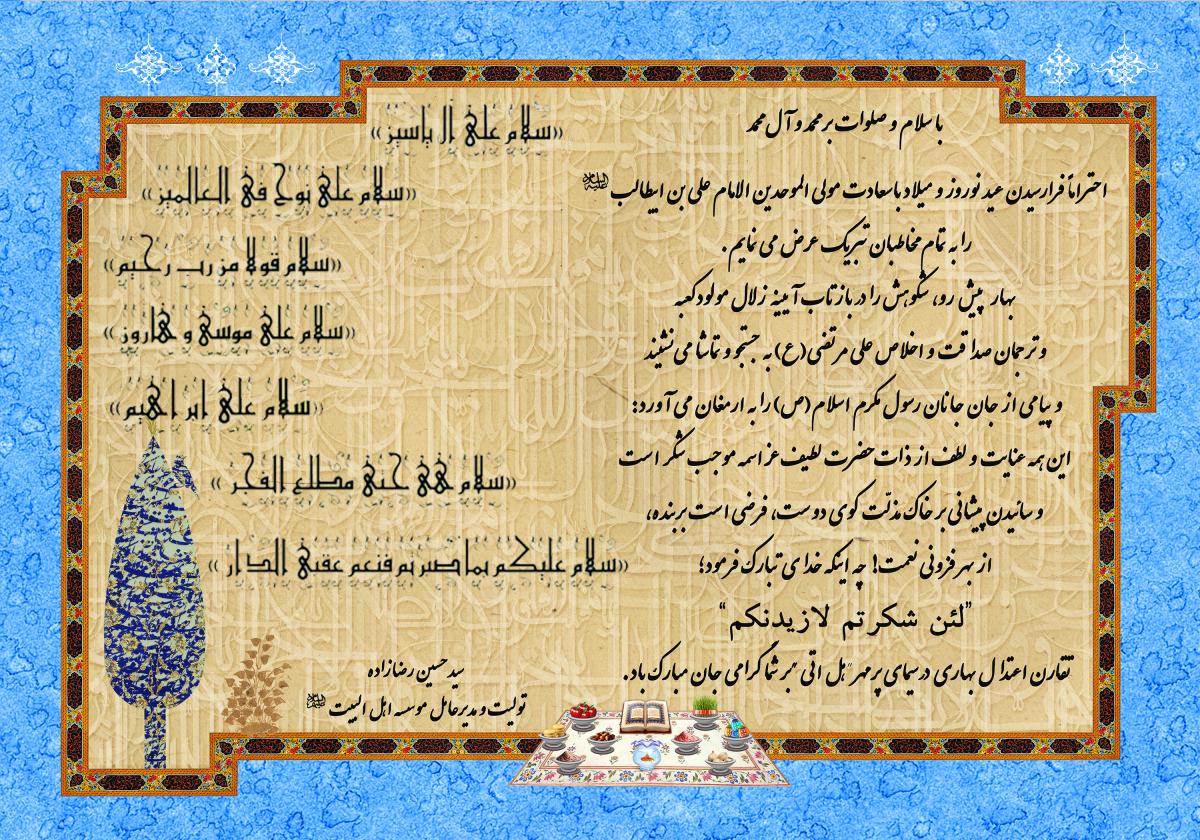 با سلام و صلوات بر محمد و آل محمد
احتراماً فرارسیدن عید نوروز و میلاد باسعادت مولی الموحدین الامام علی بن ابیطالب علیه السلام
را به تمام مخاطبان تبریک عرض می نمایم .
بهار پیش رو، شکوهش را در بازتاب آیینه زلال مولود کعبه
و ترجمان صداقت و اخلاص علی مرتضی (ع) به جستجو و تماشا می نشیند
و پیامی از جان جانان رسول مکرم اسلام (ص) را به ارمغان می آورد:
این همه عنایت و لطف از ذات حضرت لطیف عز اسمه موجب شکر است
و سائیدن پیشانی بر خاک مذلّت کوی دوست، فرضی است بر بنده،
از بهر فزونی نعمت! چه اینکه خدای تبارک فرمود؛
"لئن شکرتم لازیدنکم"
تقارن اعتدال بهاری در سیمای پر مهر "هل اتی" بر شما گرامی جان مبارک باد.
«سلام علی ال یاسین»
«سلام علی نوح فی العالمین»
«سلام قولا من رب رحیم»
«سلام علی موسی و هارون»
«سلام علی ابراهیم»
«سلام هی حتی مطلع الفجر»
«سلام علیکم بما صبرتم فنعم عقبی الدار»
سید حسین رضازاده
تولیت و مدیر عامل موسسه اهل البیت علیهم السلام